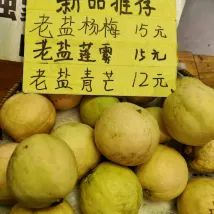 新品推荐
老盐杨梅 15元
老盐莲雾 15元
老盐青芒 12元